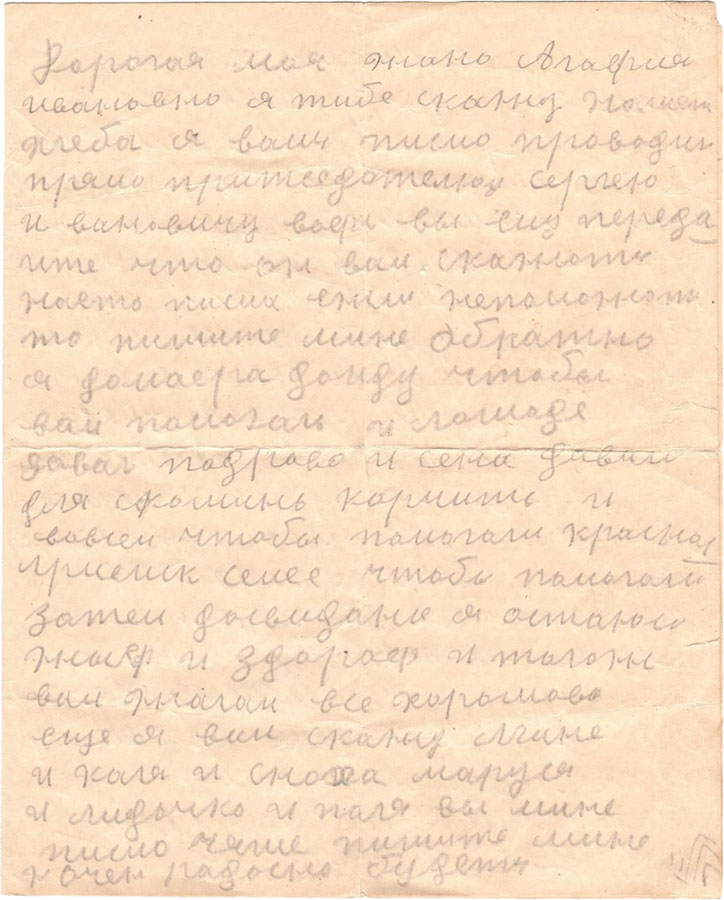 Дорогая моя жано Агафия
ивановно я тибе скажу
хлеба я вам писмо проводил
прямо притседателю сергею
и вановичу вы ему переда
ите что он вам скажот
насто писма ежли непоможот
то пишите мине обратно
я домаера дойду чтобы
вам помогали и лошаде
давал подрово и сена давал
для скотинь кормить и
вовсем чтобы помогали красно
армеиск семее чтобы помогали
затем досвидано я остаюсь
жыф и здороф и тогож
вам жалаи все хорошово
еще я вам скажу
и каля и сноха маруся
и лидочко и паля вы мине
писмо чаще пишите мине
и очен радосно будет